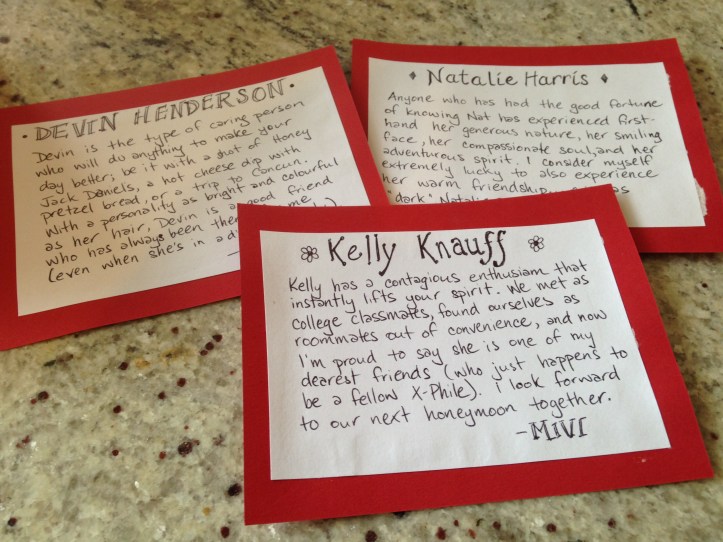 · DEVIN HENDERSON ·
Devin is the type of caring person
who will do anything to make your
day better; be it with a shot of Honey
Jack Daniels, a hot cheese dip with
pretzel bread, or a trip to Cancun.
With a personality as bright and colourful
as her hair, Devin is a good friend
who has always been there me
(even when she's in a
♦ Natalie Harris ♦
Anyone who has had the good fortune
of knowing Nat has experienced first-
hand her generous nature, her smiling
face, her compassionate soul, and her
adventurous spirit. I consider myself
extremely lucky to also experience
her warm friendship, as
"dark"
Kelly Knauff
Kelly has a contagious enthusiam that
instantly lifts your spirit. We met as
college classmates, found ourselves as
roommates out of convenience, and now
I'm proud to say she is one of my
dearest friends (who just happens to
be a fellow X-Phile). I look forward
to our next honeymoon together.
-MIVI